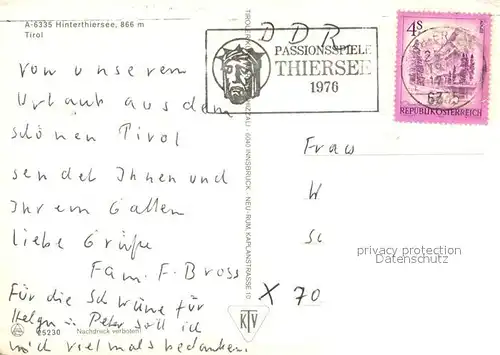 A-6335 Hinterthiersee, 866 m
Tirol
DDR
PASSIONSSPIELE
THIERSEE
1976
4S
6335
REPUBLIK ÖSTERREICH
Von unserem
Urlaub aus dem
schönen Tirol
sendet Ihnen und
Ihrem Gatten
liebe Grüße
Fam. F. Bross
Für die Schürze für
Helga u. Peter soll ich
mich vielmals bedanken.
Frau
W
Sc
privacy protection
Datenschutz
X 70
KTV
25230 Nachdruck verboten
6040 INNSBRUCK - NEU-RUM, KAPLANSTRASSE 10